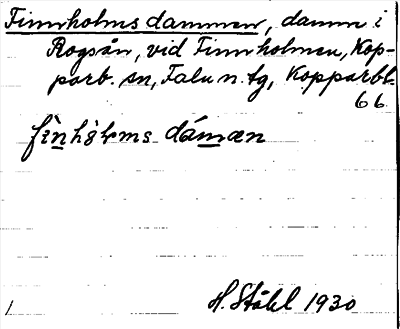 Finnholmsdammen, damm i
Rogsån, vid Finnholmen, Kop-
parb. sn, Falu n. tg, Kopparbl.
66
fìnhòlms dámen
H. Ståhl 1930
1